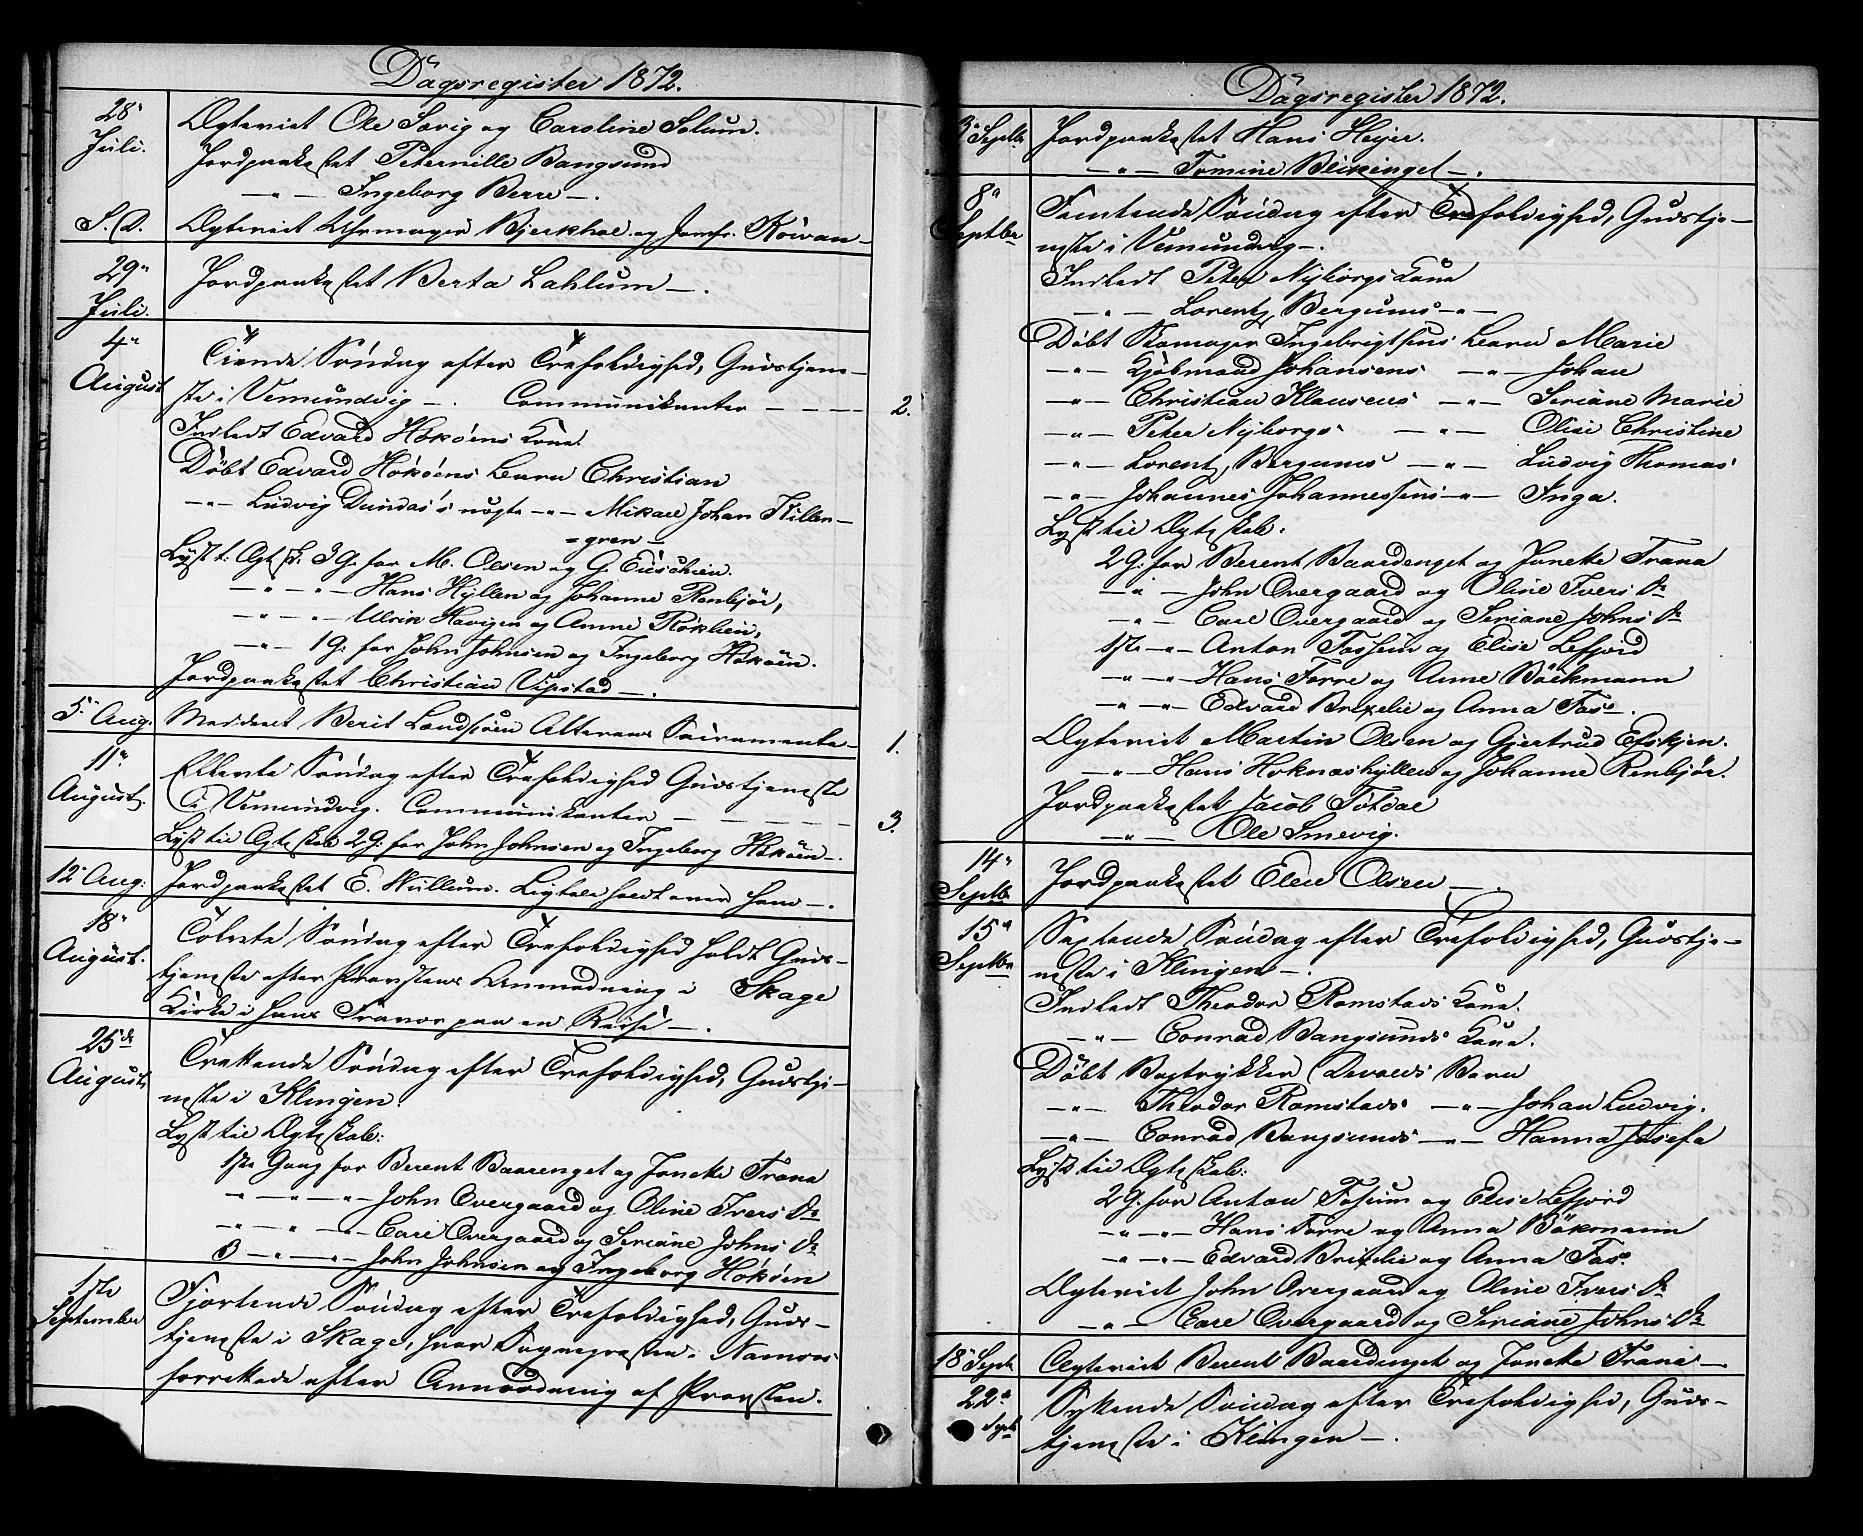 Dagsregister 1872.
28de Juli.
Ægteviet Ole Sørvig og Caroline Solum.
Jordpaakastet Peternille Bangsund
—"— Ingeborg Berre —.
S. D. Ægteviet Uhrmager Bjerkhoe og Jomfr.
29de Juli.
Jordpaakastet Berta Lahlum —.
4de August
Tiende Søndag efter Trefoldighed, Gudstjene-
ste i Vemundvig —. Communikanter — — — — 2.
Indledt Edvard Høkøens Kone.
Døbt Edvard Høkøens Barn Christian
—"— Ludvig Dundas's uægte —"— Mikael Johan Killen-
=gren —
Lyst t: Ægtsk. 3 G. for M. Olsen og G.
—"—"— Hans Hyllen og Johanne Renbjør,
—"—"— Ulrik Havigen og Anne Røklien,
—"— 1 G: for John Johnsen og Ingeborg Høkøen.
Jordpaakastet Christian Vipstad —.
5. Aug. Meddeelt Berit Landsøen Alterens Sacramente — 1.
11te August.
Ellevte Søndag efter Trefoldighed Gudstjeneste
i Vemundvig. Communikanter — — — — 3.
Lyst til Ægteskab 2 G: for John Johnsen og Ingeborg Høkøen —.
12te Aug: Jordpaakastet E. Willum. Ligtale holdt over ham —.
18de August.
Tolvte Søndag efter Trefoldighed holdt Guds-
tjeneste efter Provstens Anmodning i Skage
Kirke i hans Fravær paa en Reise —.
25de August.
Trettende Søndag efter Trefoldighed, Gudstje-
neste i Klingen.
Lyst til Ægteskab:
1ste Gang for Berent Baarenget og Joneke Frana
—"—"—"— John Overgaard og Oline Ivers Dr
—"—"—"— Carl Overgaard og Seriane Johns Dr
3 —"—"— John Johnsen og Ingeborg Høkøen
1ste September
Fjortende Søndag efter Trefoldighed, Guds-
tjeneste i Skage, hvor Sognepresten i Namsos
forrettede efter Anmodning af Provsten.
Dagsregister 1872.
3de Septbr. Jordpaakastet Hans Heijer.
—"— Tomine Blikenget —.
8de Septbr
Femtende Søndag efter Trefoldighed, Gudstje-
neste i Vemundvig —.
Indledt Peter Nyborgs Kone
—"— Lorentz Bergums —"—
Døbt Skomager Ingebrigtsens Barn Marie
—"— Kjøbmand Johansens —"— Johan
—"— Christian Klausens —"— Seriane Marie
—"— Peter Nyborgs —"— Olise Christine
—"— Lorentz Bergums —"— Ludvig Thomas
—"— Johannes Johannessens —"— Inga.
Lyst til Ægteskab:
2 G: for Berent Baardenget og Joneke Frana
—"— John Overgaard og Oline Ivers Dr
—"— Carl Overgaard og Seriane Johns Dr
1ste —"— Anton Fossum og Elise Lefjord
—"—"— Hans Forre og Anne Böckmann
—"—"— Edvard Brixelie og Anna Fos —.
Ægteviet Martin Olsen og Gjertrud
—"— Hans Hoknæshyllen og Johanne Renbjør.
Jordpaakastet Jacob Fotdal
—"— Ole Smevig.
14de Septbr
Jordpaakastet Elen Olsen —.
15de Septbr
Sextende Søndag efter Trefoldighed, Gudstje-
neste i Klingen —.
Indledt Theodor Romstads Kone.
—"— Conrad Bangsunds Kone.
Døbt Bogtrykker Devolds Barn
—"— Theodor Romstads —"— Johan Ludvig.
—"— Conrad Bangsunds —"— Hanna Josefa
Lyst til Ægteskab:
2 G. for Anton Fossum og Elise Lefjord
—"—"— Hans Forre og Anna Bökmann
—"—"— Edvard Brixelie og Anna Fos.
Ægteviet John Overgaard og Oline Ivers Dr
—"— Carl Overgaard og Seriane Johns Dr
18de Septr Ægteviet Berent Baardenget og Joneke Frana —
22de Sept.
Syttende Søndag efter Trefoldighed, Guds-
tjeneste i Klingen —.